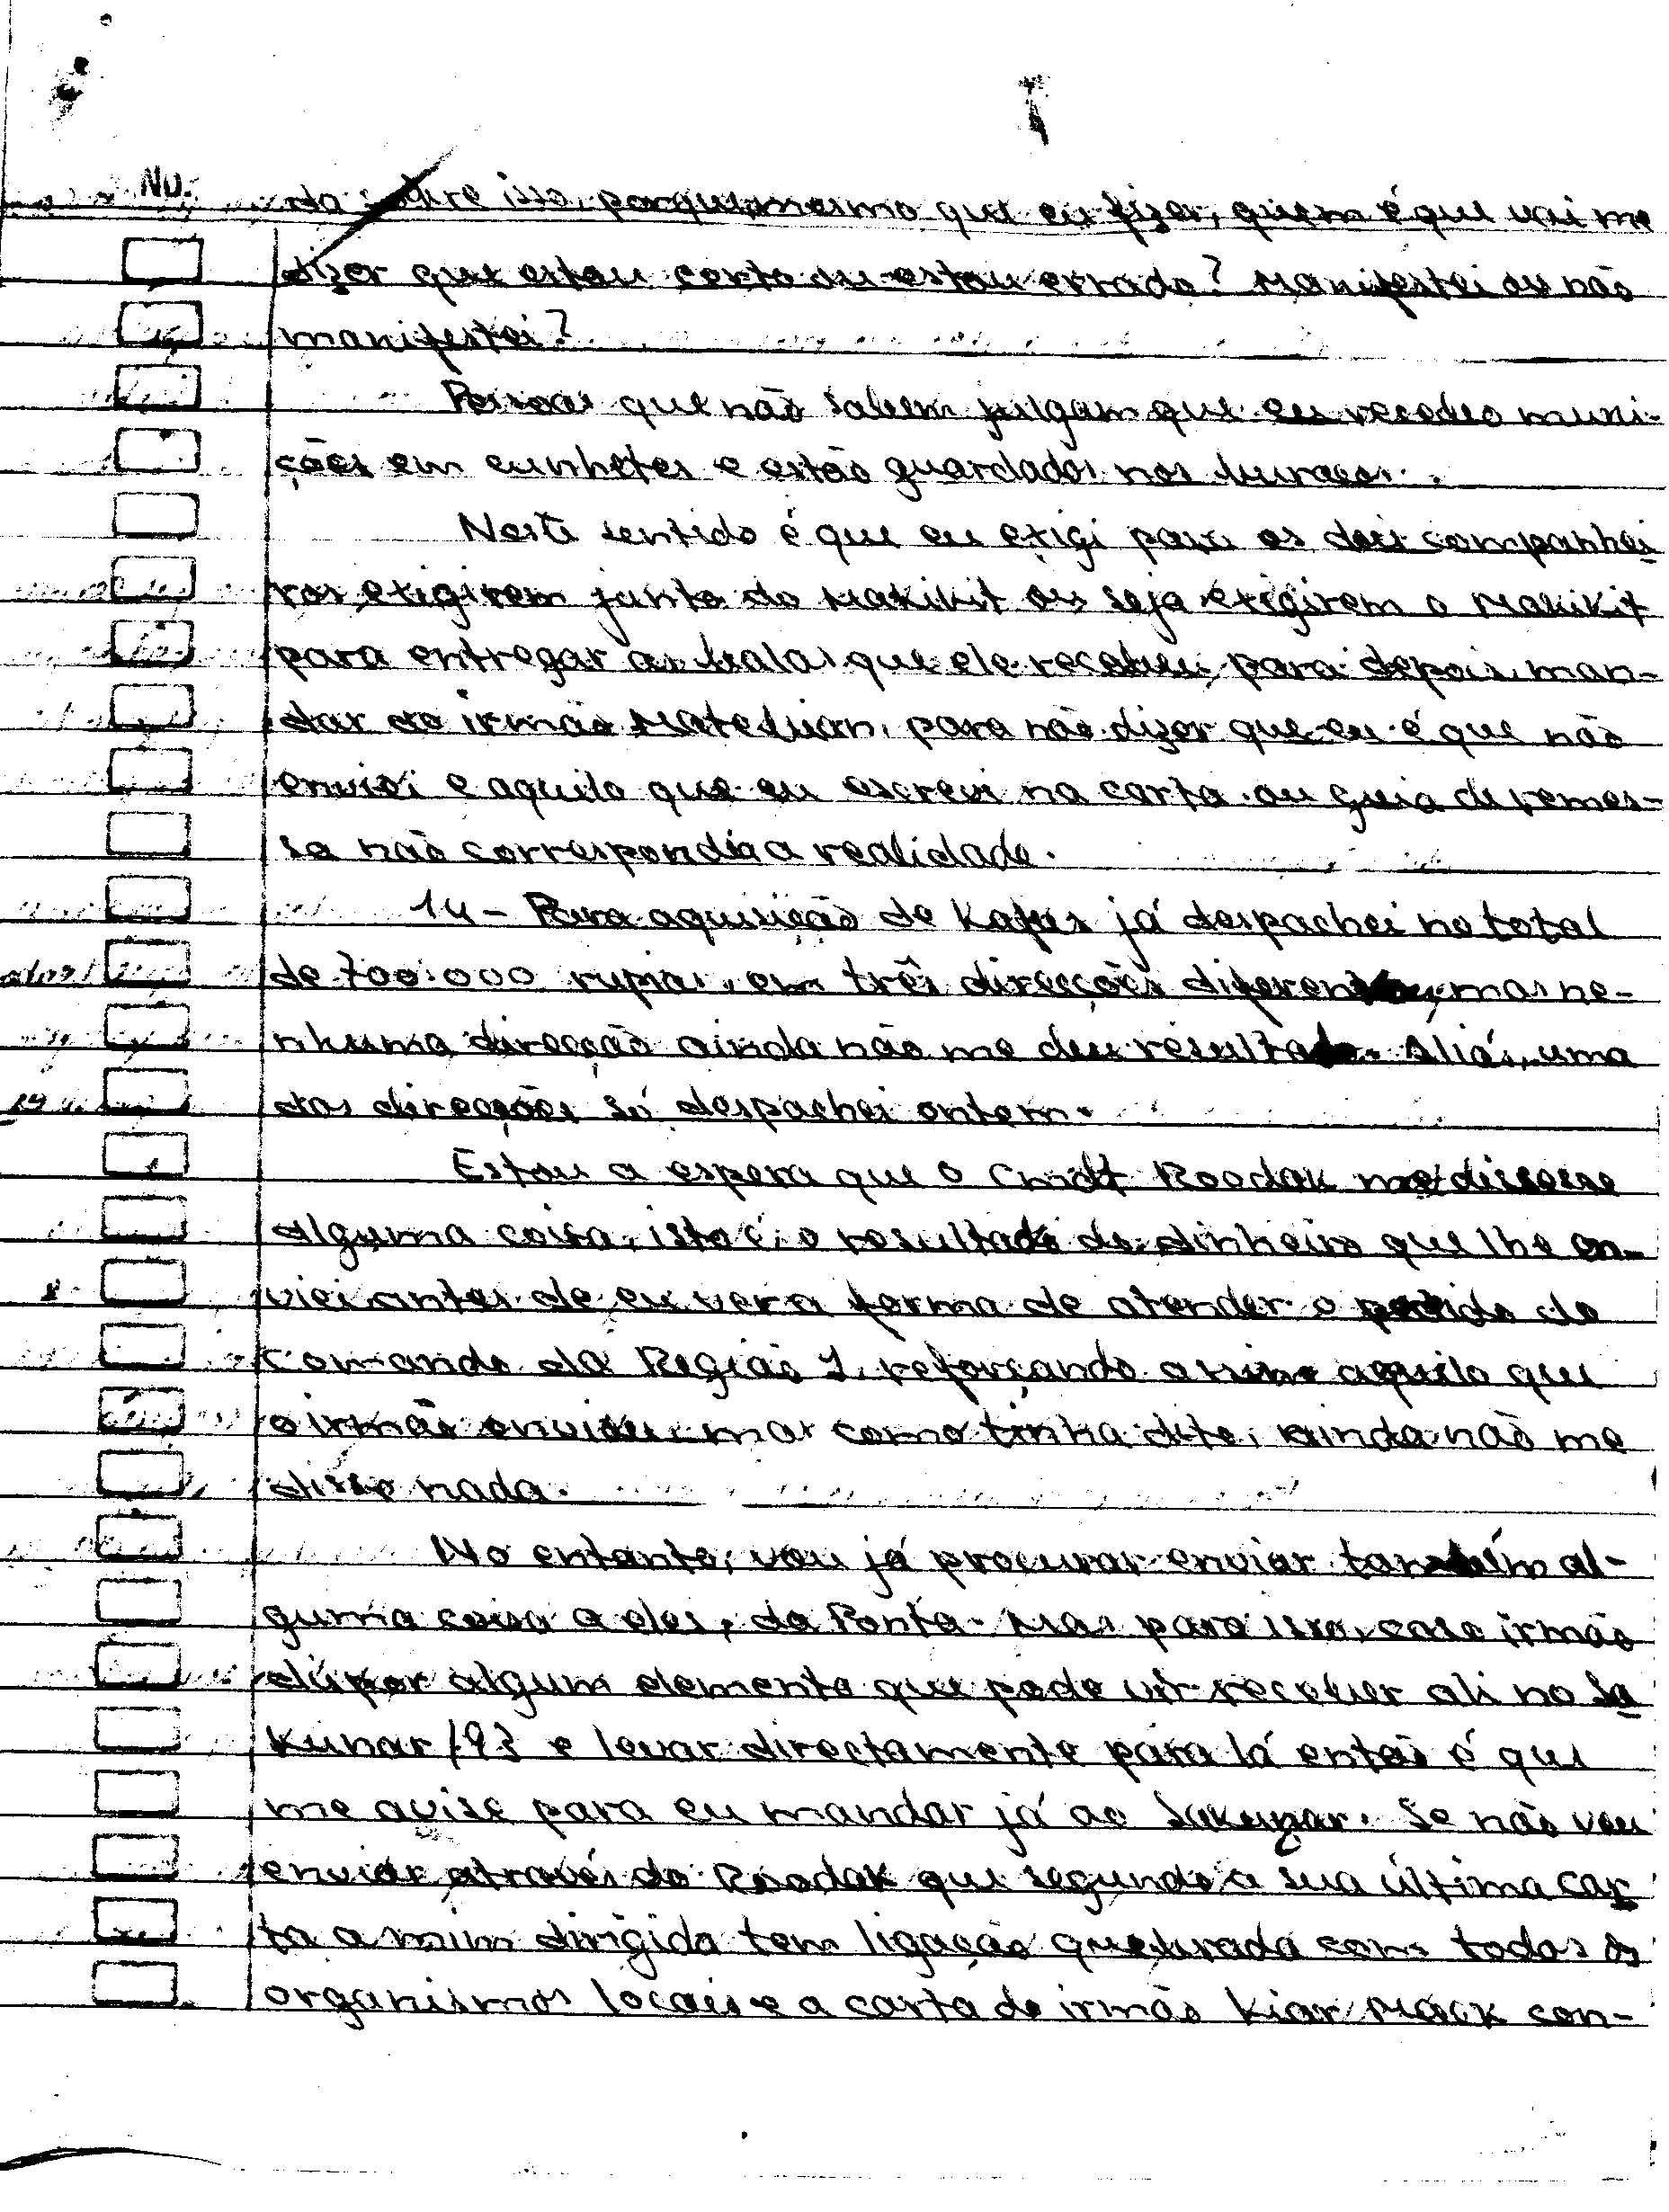 No.
do sobre isso, porque, mesmo que eu fizer, quem é que vai me
dizer que estou certo ou estou errado? Manifestei ou não
manifestei?
Pessoas que não sabem julgam que eu recebeo muni-
ções em cunhetes e estão guardados nos buracos.
Neste sentido é que eu exigi para os dois companhei
ros exigirem junto do Makikit ou seja exigirem o Makikit
para entregar as balas que ele recebeu, para depois, man-
dar ao irmão Mate Luan, para não dizer que eu é que não
enviei e aquilo que eu escrevi na carta ou guia de remes-
sa não correspondia a realidade.
14 - Para aquisição de Kapas já despachei no total
de 700.000 rupias, em três direcções diferentes, mas ne-
nhuma direcção ainda não me deu resultado. Aliás, uma
das direcções só despachei ontem.
Estou a espera que o Cmdt Roodak me dissesse
alguma coisa, isto é, o resultado do dinheiro que lhe en-
viei antes de eu ver a forma de atender o pedido do
Comando da Região 1, reforçando assim aquilo que
o irmão enviou mas como tinha dito, ainda não me
disse nada.
No entanto, vou já procurar enviar também al-
guma coisa a eles, da Ponta. Mas para isso, caso irmão
dispor algum elemento que pode vir receber ali no Sa
kunar/93 e levar directamente para lá então é que
me avise para eu mandar já ao Sakunar. Se não vou
enviar através do Roodak que segundo a sua última car
ta a mim dirigida tem ligação quebrada com todos os
organismos locais e a carta do irmão Kiar Mack con-